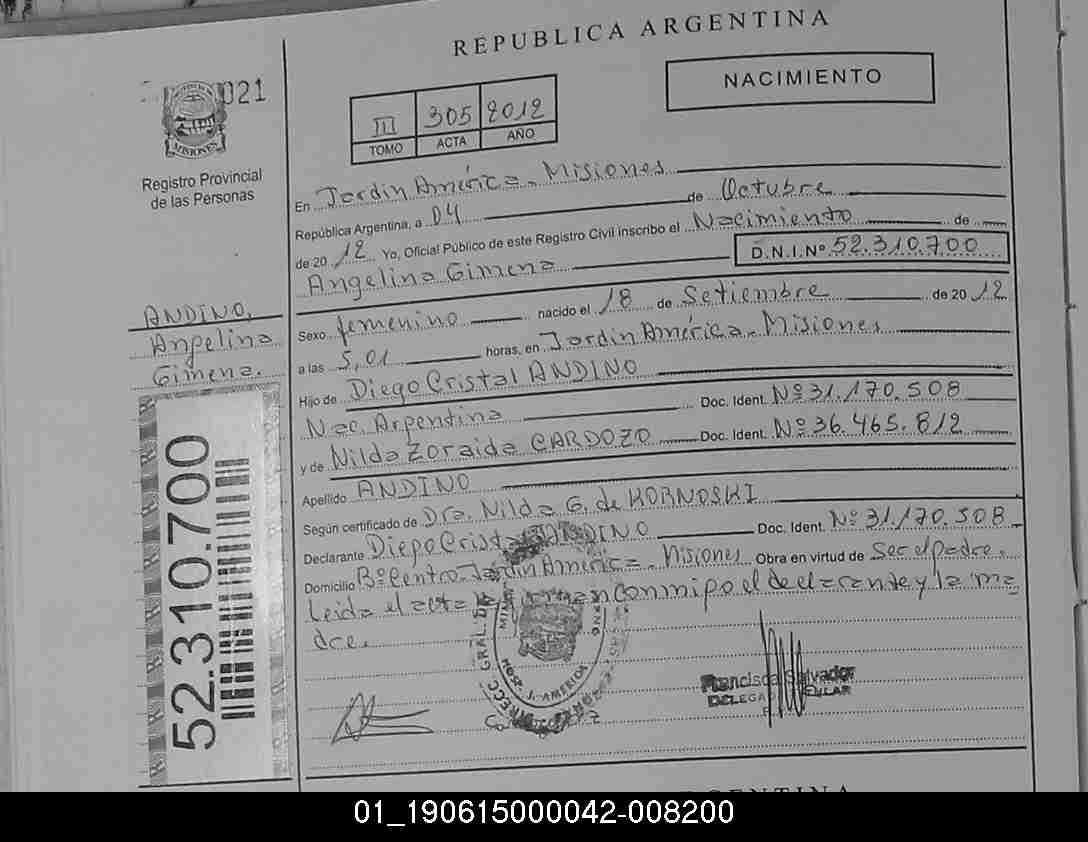 REPUBLICA ARGENTINA
021
NACIMIENTO
III 305 2012
TOMO ACTA AÑO
MISIONES
Registro Provincial
de las Personas
En Jardin América - Misiones
República Argentina, a 04 de Octubre
de 20 12 Yo, Oficial Público de este Registro Civil inscribo el Nacimiento de
Angelina Gimena D.N.I.Nº 52.310.700
ANDINO,
Angelina
Gimena.
Sexo femenino nacido el 18 de Setiembre de 20 12
a las 5,01 horas, en Jardin América - Misiones
Hijo de Diego Cristal ANDINO
Nac. Argentina Doc. Ident. Nº 31.170.508
y de Nilda Zoraida CARDOZO Doc. Ident. Nº 36.465.812
Apellido ANDINO
Según certificado de Dra. Nilda G. de KORNOSKI
Declarante Diego Cristal ANDINO Doc. Ident. Nº 31.170.508
Domicilio Bº Centro Jardin América - Misiones Obra en virtud de Ser el padre.
Leida el acta conmigo el declarante y la ma
dre.
52.310.700
Francisco Salvador
01_190615000042-008200